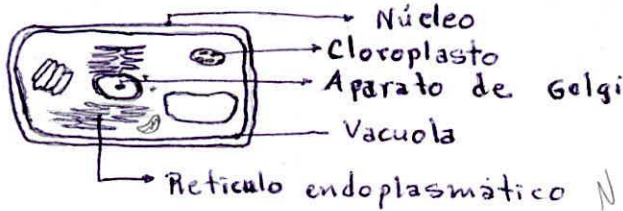 Núcleo
Cloroplasto
Aparato de Golgi
Vacuola
Retículo endoplasmático N